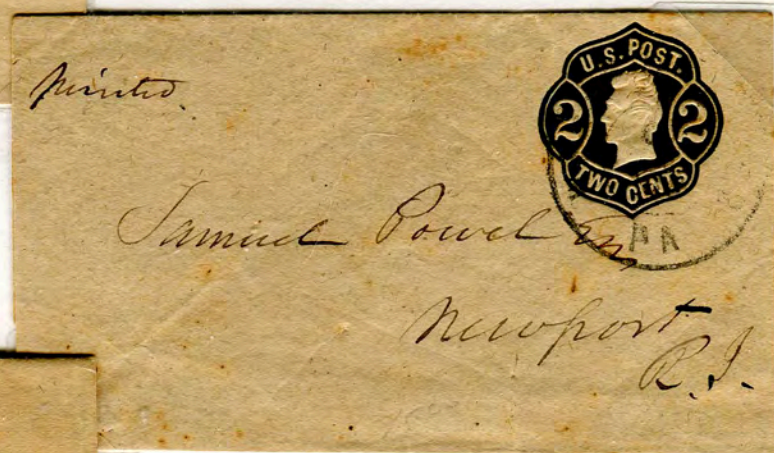 Printed.
U.S. POST.
2 2
TWO CENTS
PA
Samuel Powel
Newport
R.I.